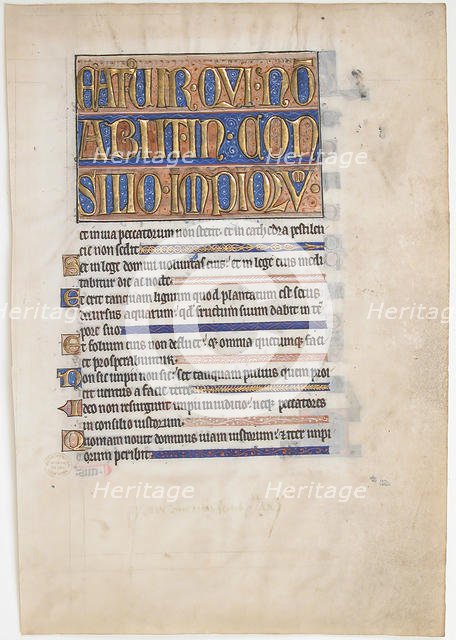 EATUIR·QVI·NO
ABIIT·IN·CON
SILIO·IMPIOLV·
et in via peccatorum non stetit: et in cathedra pestilen
tie non sedit
Set in lege domini voluntas eius: et in lege eius medi
tabitur die ac nocte
Et erit tanquam lignum quod plantatum est secus
decursus aquarum: quod fructum suum dabit in tem
pore suo
Et folium eius non defluet: et omnia quecumque faci
et prosperabuntur
Non sic impii non sic: set tanquam pulvis quem proi
cit ventus a facie terre
Ideo non resurgunt impii in iudicio: neque peccatores
in consilio iustorum
Quoniam novit dominus viam iustorum: et iter impi
orum peribit
Heritage
Heritage
Heritage
Heritage
Heritage
Heritage